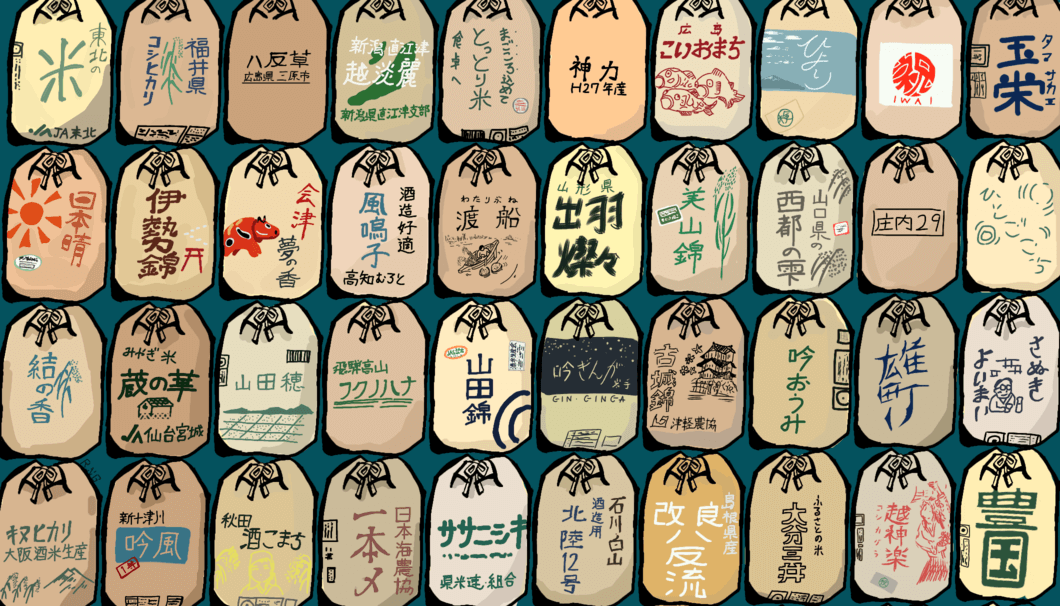 東北の
米
JA東北
福井県
コシヒカリ
八反草
広島県 三原市
新潟直江津
越淡麗
新潟県直江津支部
まごころ込めて
とっとり米
食卓へ
神力
H27年産
広島
こいおまち
ひより
IWAI
タマサカエ
玉栄
日本晴
伊勢錦
会津
夢の香
酒造好適
風鳴子
高知むろと
わたりぶね
渡船
山形県
出羽燦々
美山錦
山口県の
西都の雫
庄内29
ひとごこち
結の香
みやぎ米
蔵の華
JA仙台宮城
山田穂
飛騨高山
フクノハナ
山田錦
吟ぎんが
岩手
GIN・GINGA
古城錦
津軽農協
吟おうみ
雄町
さぬき
よいまい
キヌヒカリ
大阪酒米生産
新十津川
吟風
秋田
酒こまち
日本海農協
一本〆
ササニシキ
県米連・組合
石川白山
酒造用
北陸12号
島根県産
改良八反流
ふるさとの米
大分三井
越神楽
コシカグラ
豊国